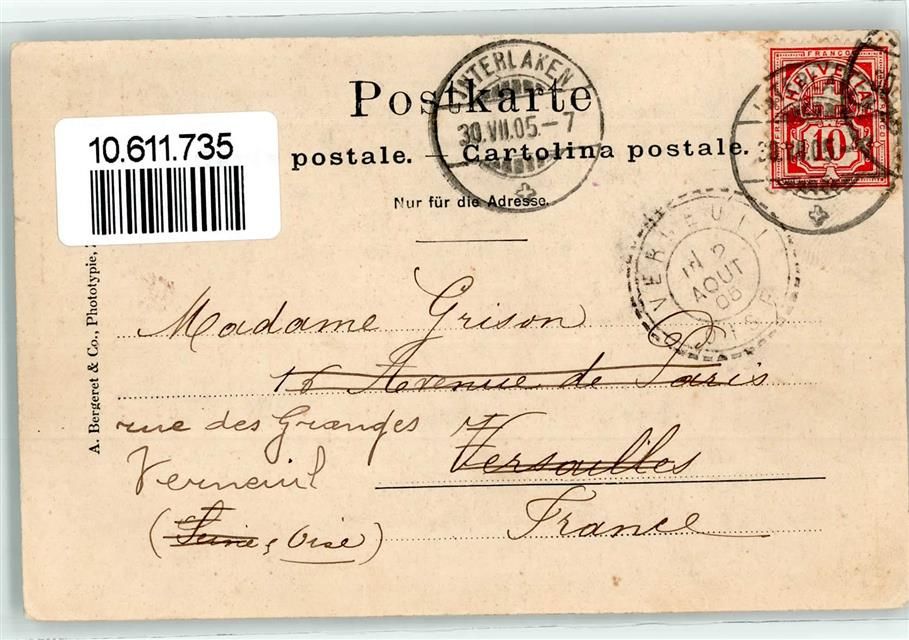 Postkarte
postale. — Cartolina postale.
Nur für die Adresse.
10.611.735
A. Bergeret & Co., Phototypie,
INTERLAKEN
30.VII.05.-7
FRANCO
HELVETIA
10
VERNEUIL
2
AOUT
05
OISE
Madame Grison
16 Avenue de Paris
rue des Granges
Versailles
Verneuil
(Seine, Oise)
France